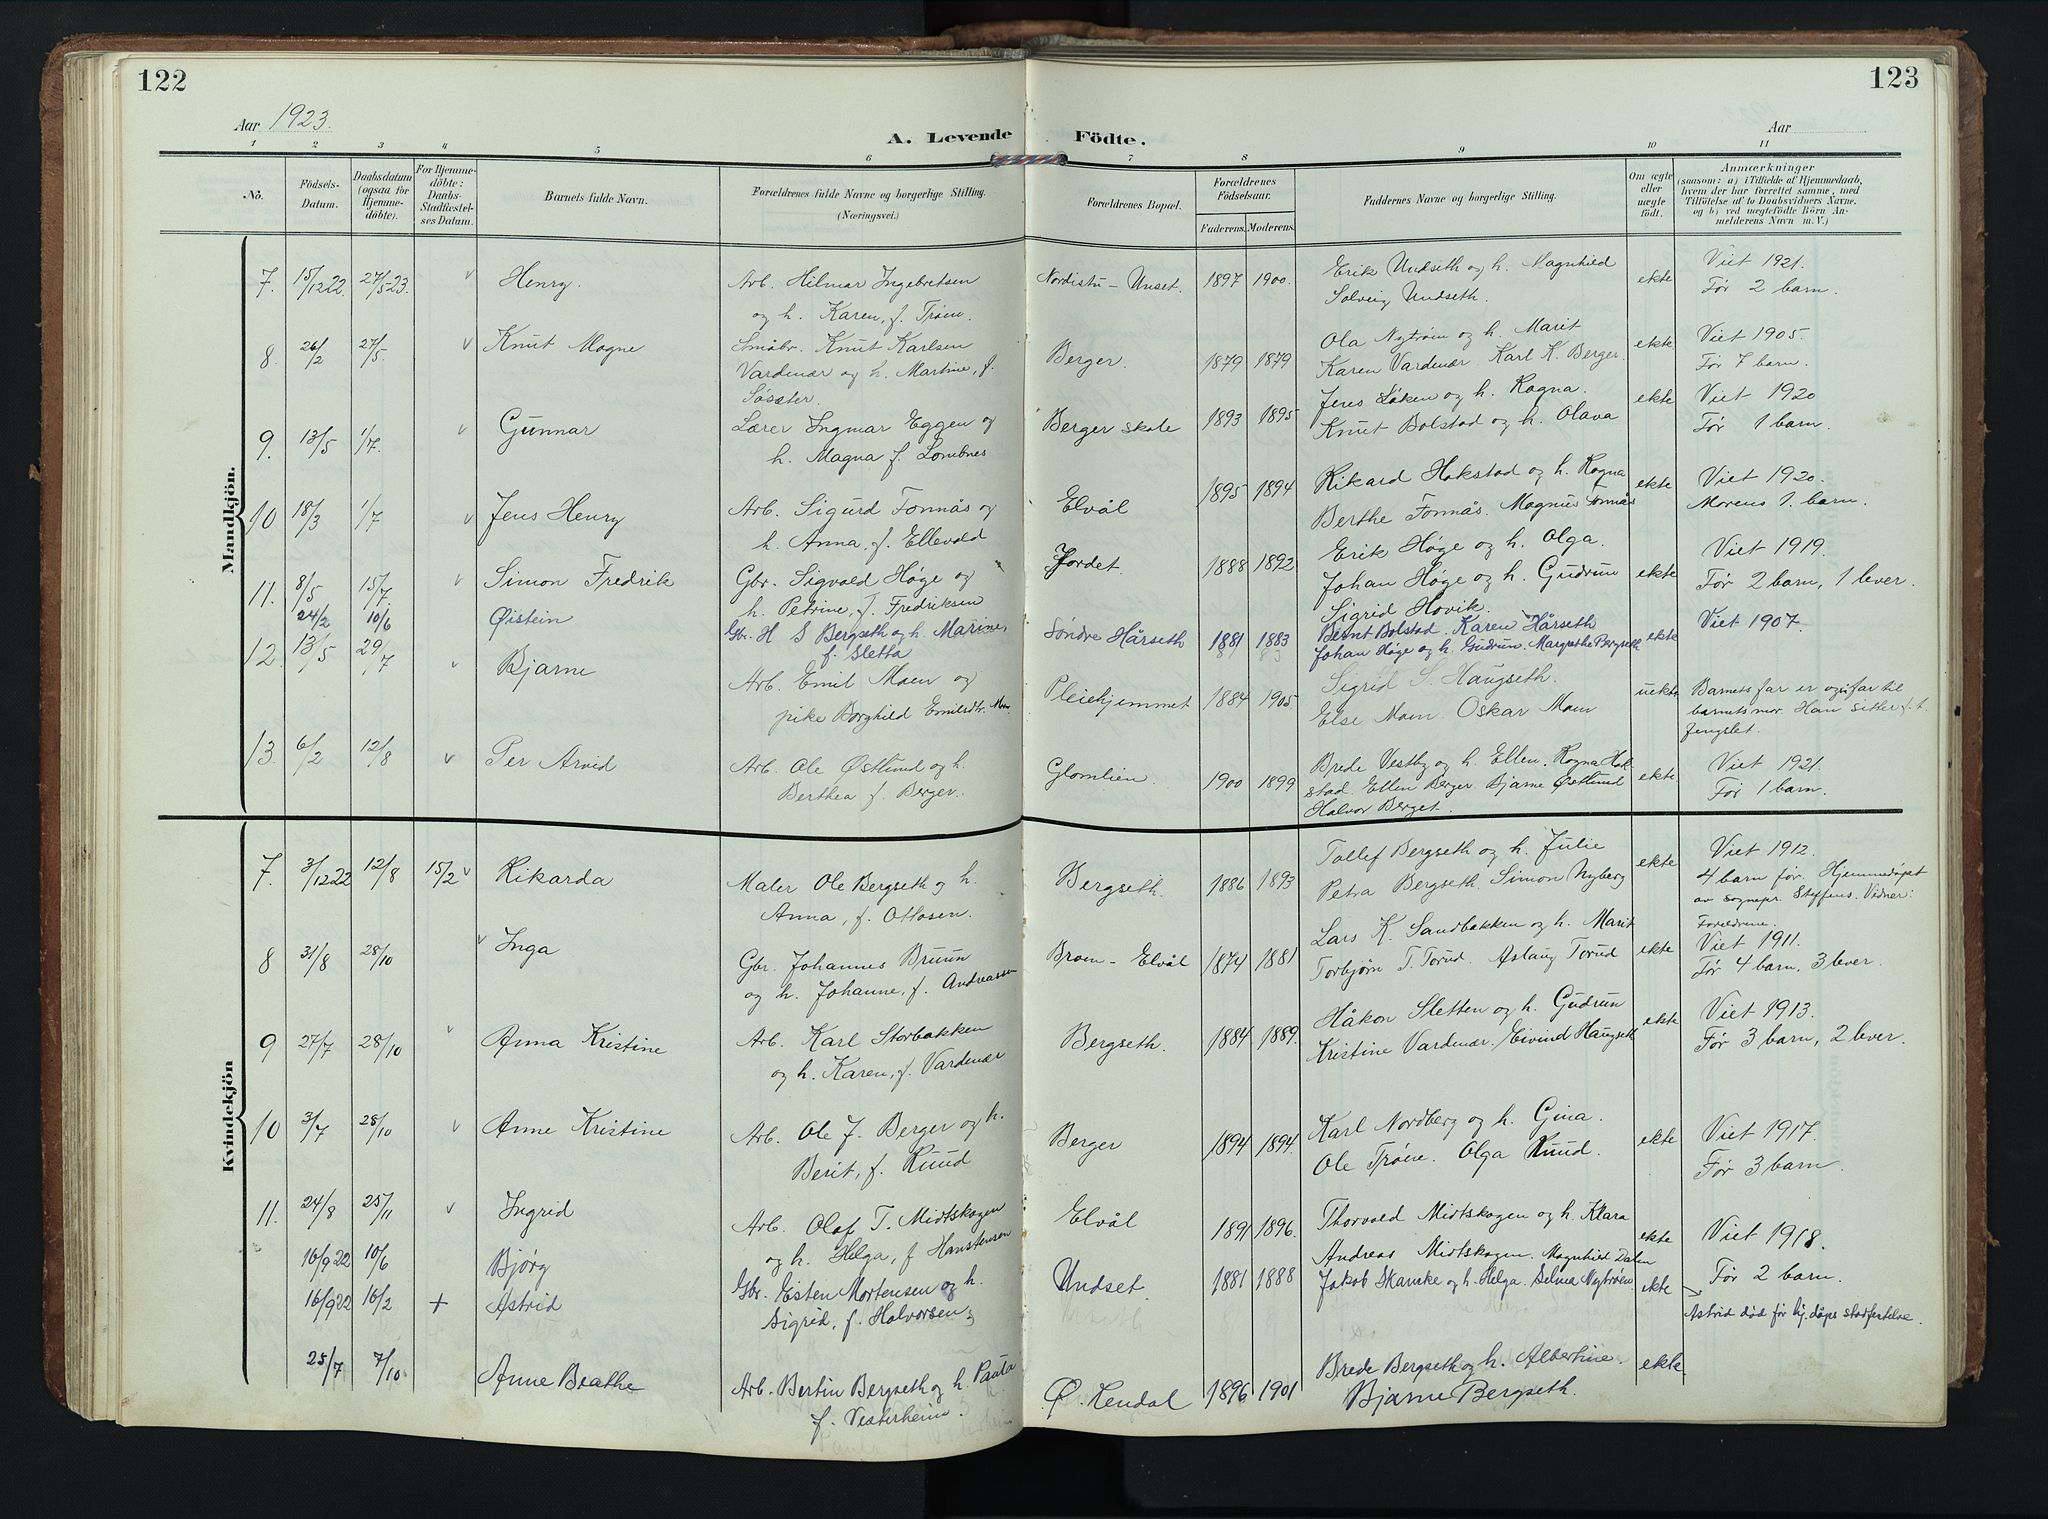 122
123
Aar 1923.
A. Levende Födte.
Aar
1 2 3 4 5 6 7 8 9 10 11
No.
Födsels-Datum.
Daabsdatum (ogsaa for Hjemme-döbte).
For Hjemme-döbte: Daabs-Stadfæstel-ses Datum.
Barnets fulde Navn.
Forældrenes fulde Navne og borgerlige Stilling. (Næringsvei.)
Forældrenes Bopæl.
Forældrenes Födselsaar.
Faderens. Moderens.
Faddernes Navne og borgerlige Stilling.
Om ægte eller uægte födt.
Anmærkninger
(saasom: a) i Tilfælde af Hjemmedaab, hvem der har forrettet samme, med Tilföielse af to Daabsvidners Navne, og b) ved uægtefödte Börn An-melderens Navn m. V.)
Mandkjön.
7. 15/12 22 27/5 23. v Henry. Arb. Hilmar Ingebretsen Nordistu - Unset. 1897 1900. Erik Undseth og h. Magnhild ekte Viet 1921.
og h. Karen, f. Trøen. Solveig Undseth. Før 2 barn.
8. 26/2 27/5 v Knut Magne Småbr. Knut Karlsen Berger. 1879 1879 Ola Nytrøen og h. Marit ekte Viet 1905.
Vardenær og h. Martine, f. Karen Vardenær. Karl K. Berger. Før 7 barn.
Søsster.
9. 13/5 1/7. v Gunnar Lærer Ingmar Eggen og Berger skole 1893 1895 Jens Løken og h. Ragna. ekte Viet 1920
h. Magna f. Lombnes Knut Bolstad og h. Olava Før 1 barn.
10 18/3 1/7 v Jens Henry Arb. Sigurd Fonnås og Elvål 1895 1894 Rikard Hakstad og h. Ragna ekte Viet 1920.
h. Anna, f. Ellevold Berthe Fonnås. Magnus Fonnås Morens 1. barn.
11. 8/5 15/7 v Simon Fredrik Gbr. Sigvald Høge og Jordet 1888 1892 Erik Høge og h. Olga. ekte Viet 1919.
h. Petrine, f. Fredriksen Johan Høge og h. Gudrun Før 2 barn, 1 lever.
Sigrid Hovik.
24/2 10/6 Øistein Gbr. H S Bergseth og h. Marine, Søndre Hårseth 1881 1883 Bernt Bolstad. Karen Hårseth ekte Viet 1907.
f. Sletta Johan Høge og h. Gudrun. Margrethe Bergseth
12. 13/5 29/7 v Bjarne Arb. Emil Moen og Pleiehjemmet 1884 1905 Sigrid S. Haugseth. uekte Barnets far er også far til
pike Borghild Emilsdtr. Moen Else Moen. Oskar Moen barnets mor. Han sitter f. t.
fengslet.
13. 6/2 12/8 v Per Arvid Arb. Ole Østlund og h. Glomlien. 1900 1899 Brede Vestby og h. Ellen. Ragna Hak- ekte Viet 1921.
Berthea f. Berger. stad. Ellen Berger. Bjarne Østlund Før 1 barn.
Halvor Berget.
Kvindekjön
7. 3/12 22 12/8 15/2 v Rikarda Maler Ole Bergseth og h. Bergseth. 1886 1893 Tollef Bergseth og h. Julie ekte Viet 1912.
Anna, f. Ottosen. Petra Bergseth. Simon Nyberg 4 barn før. Hjemmedøpt
av sognepr. Steffens. Vidner:
Foreldrene.
8 31/8 28/10 v Inga Gbr. Johannes Bruun Broen - Elvål 1874 1881 Lars K. Sandbakken og h. Marit ekte Viet 1911.
og h. Johanne, f. Andreassen Torbjørn T. Torud. Aslaug Torud Før 4 barn, 3 lever.
9 27/7 28/10 v Anna Kristine Arb. Karl Storbakken Bergseth. 1884 1889. Håkon Sletten og h. Gudrun ekte Viet 1913.
og h. Karen, f. Vardenær Kristine Vardenær. Eivind Haugseth Før 3 barn, 2 lever.
10 3/7 28/10 v Anne Kristine Arb. Ole J. Berger og h. Berger 1894 1894. Karl Nordberg og h. Gina. ekte Viet 1917.
Berit, f. Ruud Ole Trøen. Olga Ruud. Før 3 barn.
11. 24/8 25/11 v Ingrid Arb. Olaf T. Midtskogen Elvål 1891 1896. Thorvald Midtskogen og h. Klara ekte Viet 1918.
og h. Helga, f. Hanstensen Andreas Midtskogen. Magnhild Dalen Før 2 barn.
16/9 22 10/6 Bjørg Gbr. Esten Mortensen og h. Undset. 1881 1888 Jakob Skancke og h. Helga. Selma Nybrøen ekte
16/9 22 16/2 + Astrid Sigrid, f. Halvorsen. Astrid død før hj. dåps stadfestelse.
25/7 7/10 Anne Beathe Arb. Bertin Bergseth og h. Paula Ø. Rendal 1896 1901 Brede Bergseth og h. Albertine. ekte
f. Vesterheim. Bjarne Bergseth.